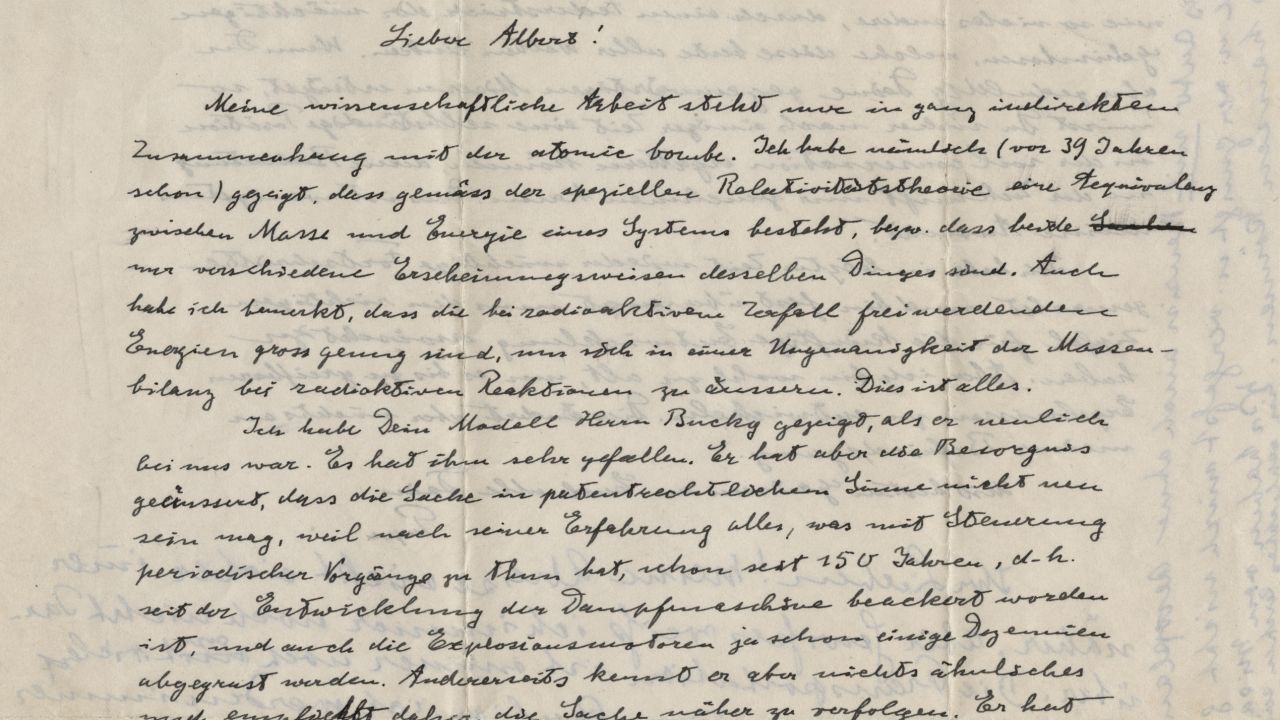 Lieber Albert!
Meine wissenschaftliche Arbeit steht nur in ganz indirektem
Zusammenhang mit der atomic bombe. Ich habe nämlich (vor 39 Jahren
schon) gezeigt, dass gemäss der speziellen Relativitätstheorie eine Aequivalenz
zwischen Masse und Energie eines Systems besteht, bezw. dass beide
nur verschiedene Erscheinungsweisen desselben Dinges sind. Auch
habe ich bemerkt, dass die bei radioaktivem Zerfall freiwerdenden
Energien gross genug sind, um sich in einer Ungenauigkeit der Massen-
bilanz bei radioaktiven Reaktionen zu äussern. Dies ist alles.
Ich habe Dein Modell Herrn Bucky gezeigt, als er neulich
bei uns war. Es hat ihm sehr gefallen. Er hat aber die Besorgnis
geäussert, dass die Sache in patentrechtlichem Sinne nicht neu
sein mag, weil nach seiner Erfahrung alles, was mit Steuerung
periodischer Vorgänge zu thun hat, schon seit 150 Jahren, d.h.
seit der Entwicklung der Dampfmaschine beackert worden
ist, und auch die Explosionsmotoren ja schon einige Dezennien
abgegrast werden. Andererseits kennt er aber nichts ähnliches
und empfiehlt daher die Sache näher zu verfolgen. Er hat